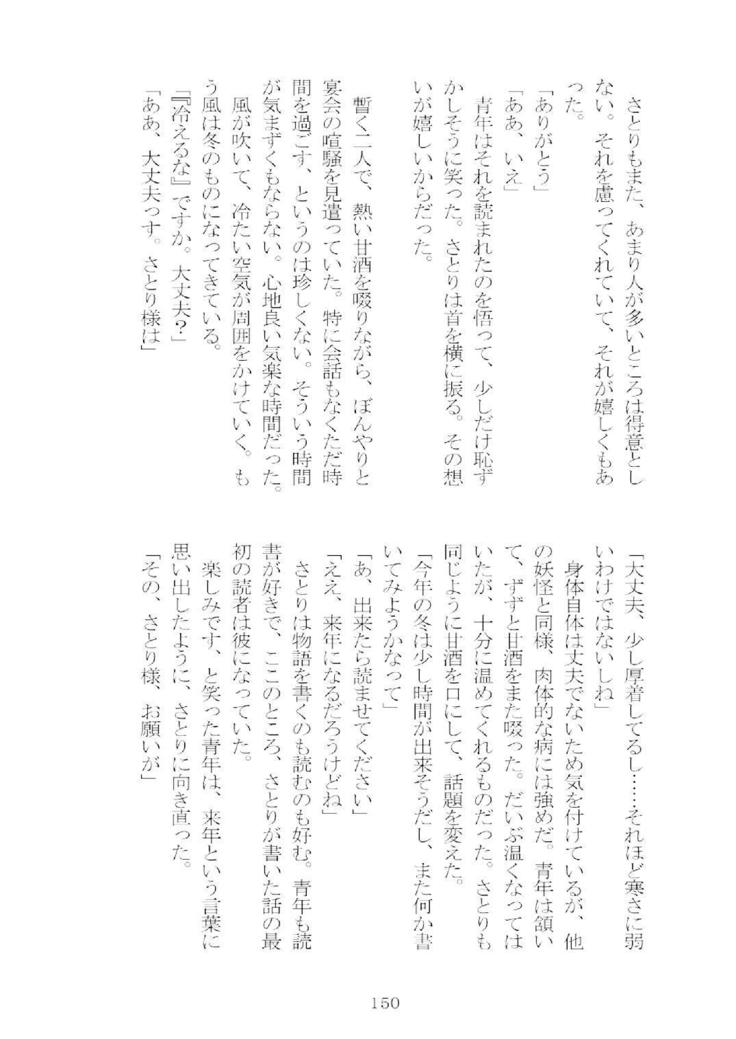 さとりもまた、あまり人が多いところは得意とし
ない。それを慮ってくれていて、それが嬉しくもあ
った。
「ありがとう」
「ああ、いえ」
　青年はそれを読まれたのを悟って、少しだけ恥ず
かしそうに笑った。さとりは首を横に振る。その想
いが嬉しいからだった。
　暫く二人で、熱い甘酒を啜りながら、ぼんやりと
宴会の喧騒を見遣っていた。特に会話もなくただ時
間を過ごす、というのは珍しくない。そういう時間
が気まずくもならない。心地良い気楽な時間だった。
　風が吹いて、冷たい空気が周囲をかけていく。も
う風は冬のものになってきている。
「『冷えるな』ですか。大丈夫？」
「ああ、大丈夫っす。さとり様は」
「大丈夫、少し厚着してるし……それほど寒さに弱
いわけではないしね」
　身体自体は丈夫でないため気を付けているが、他
の妖怪と同様、肉体的な病には強めだ。青年は頷い
て、ずずと甘酒をまた啜った。だいぶ温くなっては
いたが、十分に温めてくれるものだった。さとりも
同じように甘酒を口にして、話題を変えた。
「今年の冬は少し時間が出来そうだし、また何か書
いてみようかなって」
「あ、出来たら読ませてください」
「ええ、来年になるだろうけどね」
　さとりは物語を書くのも読むのも好む。青年も読
書が好きで、ここのところ、さとりが書いた話の最
初の読者は彼になっていた。
　楽しみです、と笑った青年は、来年という言葉に
思い出したように、さとりに向き直った。
「その、さとり様、お願いが」
150